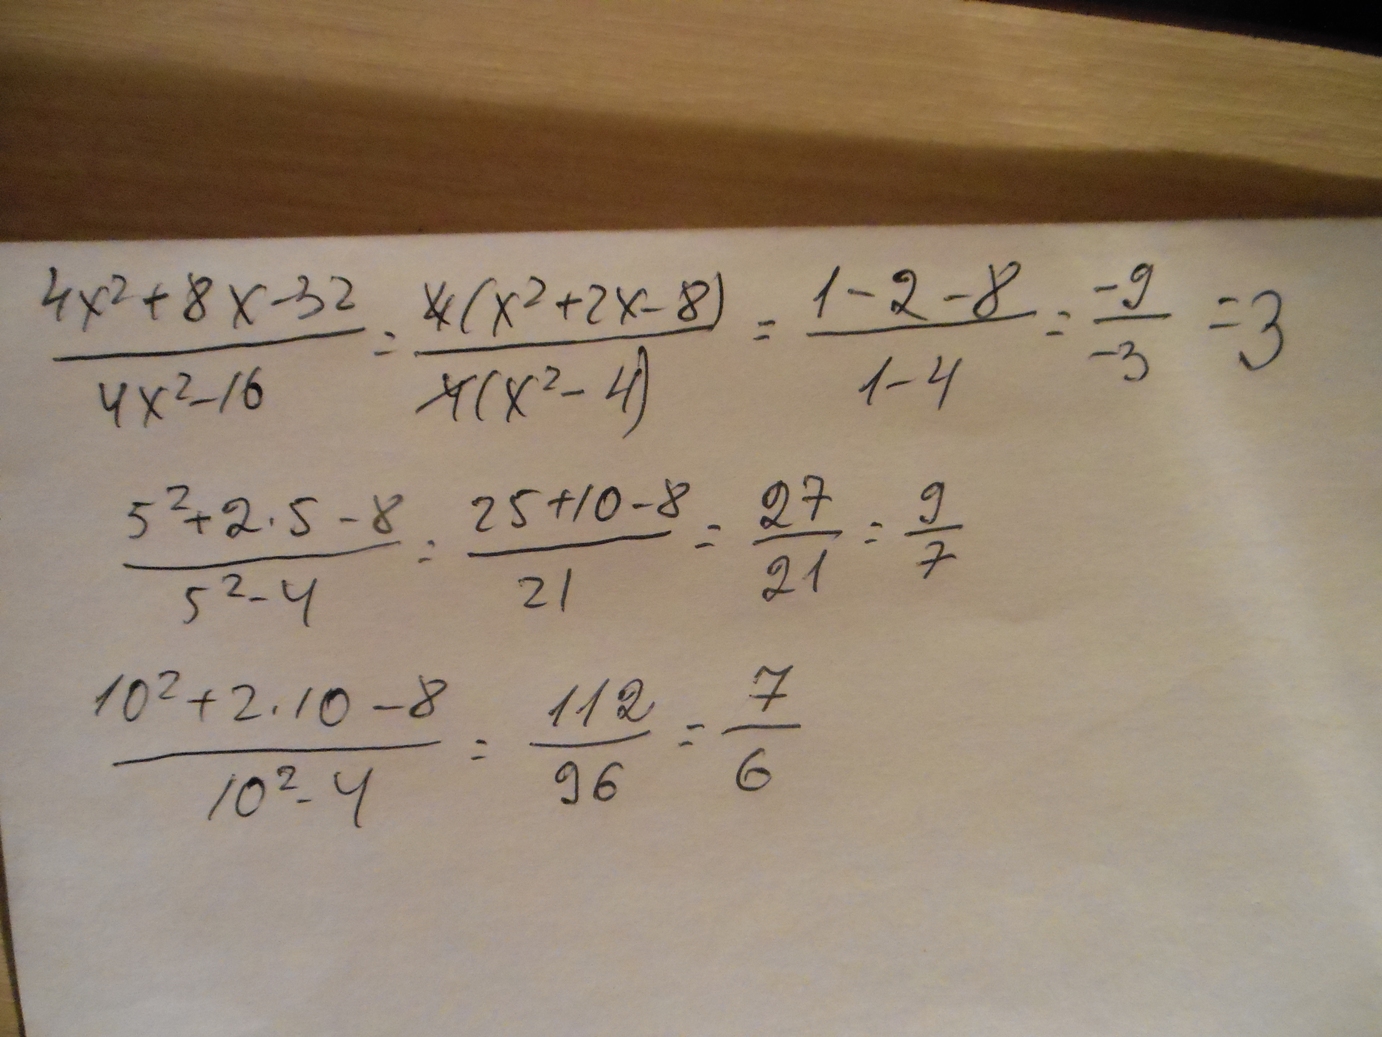 (4x²+8x-32)/(4x²-16) = (4(x²+2x-8))/(4(x²-4)) = (1-2-8)/(1-4) = (-9)/(-3) = 3
(5²+2·5-8)/(5²-4) = (25+10-8)/21 = 27/21 = 9/7
(10²+2·10-8)/(10²-4) = 112/96 = 7/6